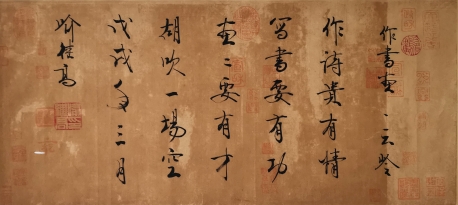 作書畫
作詩貴有情
寫書要有功
畫〻要有才
胡吹一場空
戊戌年三月
喻桂高